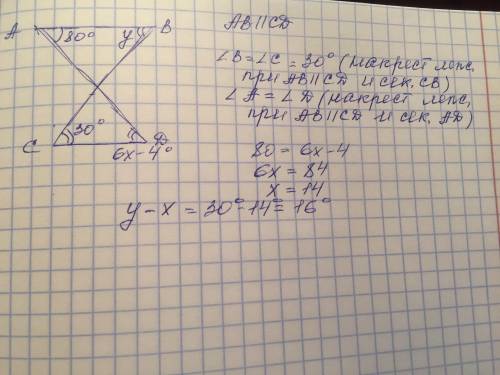 A 80° y B
C 30° D
6x-4°
AB||CD
∠B=∠C=30° (накрест леж,
при AB||CD и сек. CB)
∠A=∠D (накрест леж,
при AB||CD и сек. AD)
80 = 6x-4
6x = 84
x = 14
y-x = 30°-14°= 16°